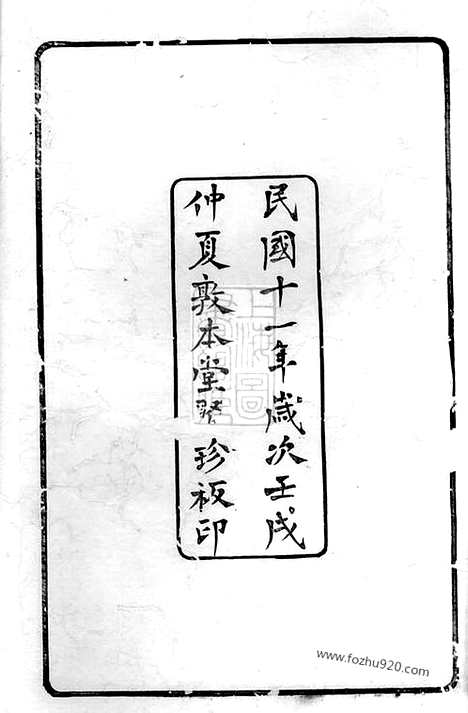 民國十一年歲次壬戌
仲夏敦本堂聚珍板印
www.fozhu920.com